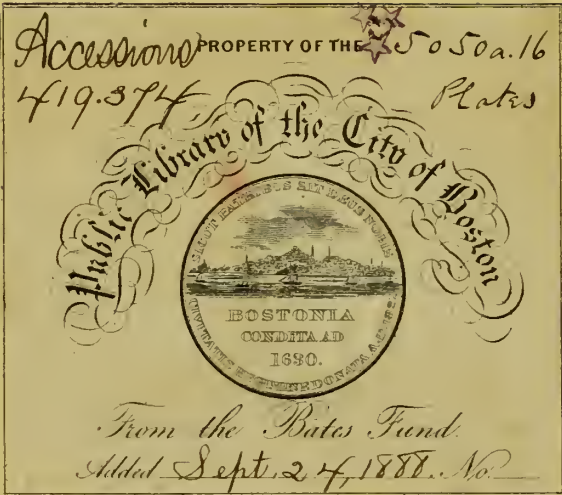 Accessions PROPERTY OF THE 5050a.16
419.374 Plates
Public Library of the City of Boston
SICUT PATRIBUS SIT DEUS NOBIS
BOSTONIA
CONDITA AD
1630.
CIVITATIS REGIMINE DONATA A.D. 1822.
From the Bates Fund.
Added Sept. 24, 1888. No.